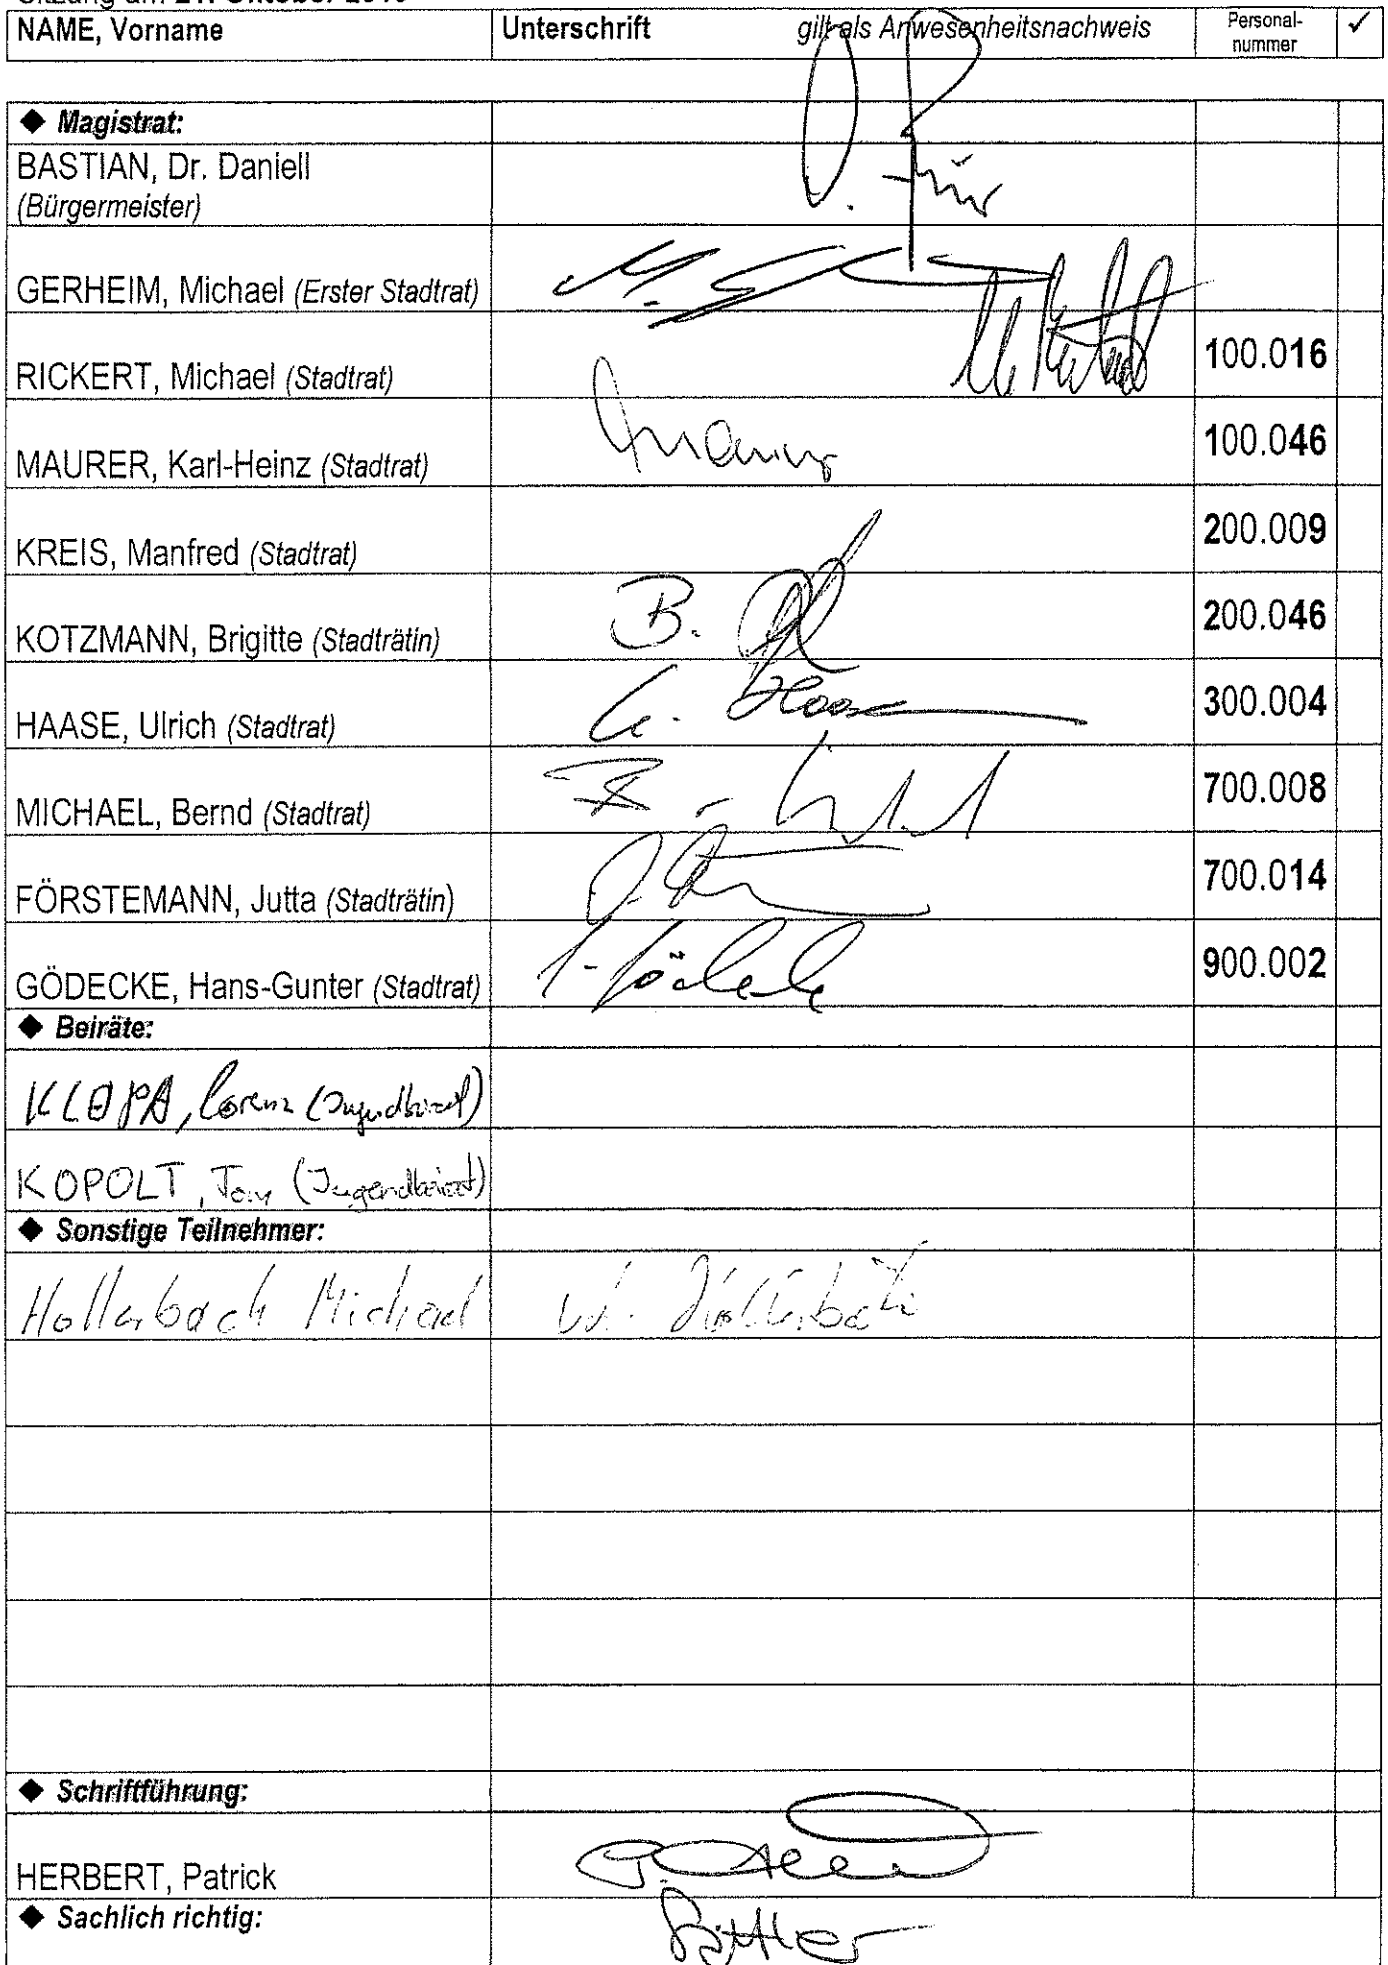 NAME, Vorname Unterschrift gilt als Anwesenheitsnachweis Personal-nummer ✓
◆ Magistrat:
BASTIAN, Dr. Daniell
(Bürgermeister)
GERHEIM, Michael (Erster Stadtrat)
RICKERT, Michael (Stadtrat) 100.016
MAURER, Karl-Heinz (Stadtrat) 100.046
KREIS, Manfred (Stadtrat) 200.009
KOTZMANN, Brigitte (Stadträtin) B. 200.046
HAASE, Ulrich (Stadtrat) Haase 300.004
MICHAEL, Bernd (Stadtrat) 700.008
FÖRSTEMANN, Jutta (Stadträtin) 700.014
GÖDECKE, Hans-Gunter (Stadtrat) 900.002
◆ Beiräte:
KLOPA, Lorenz (Jugendbeirat)
KOPOLT, Tom (Jugendbeirat)
◆ Sonstige Teilnehmer:
Hollerbach Michael Hollerbach
◆ Schriftführung:
HERBERT, Patrick
◆ Sachlich richtig: